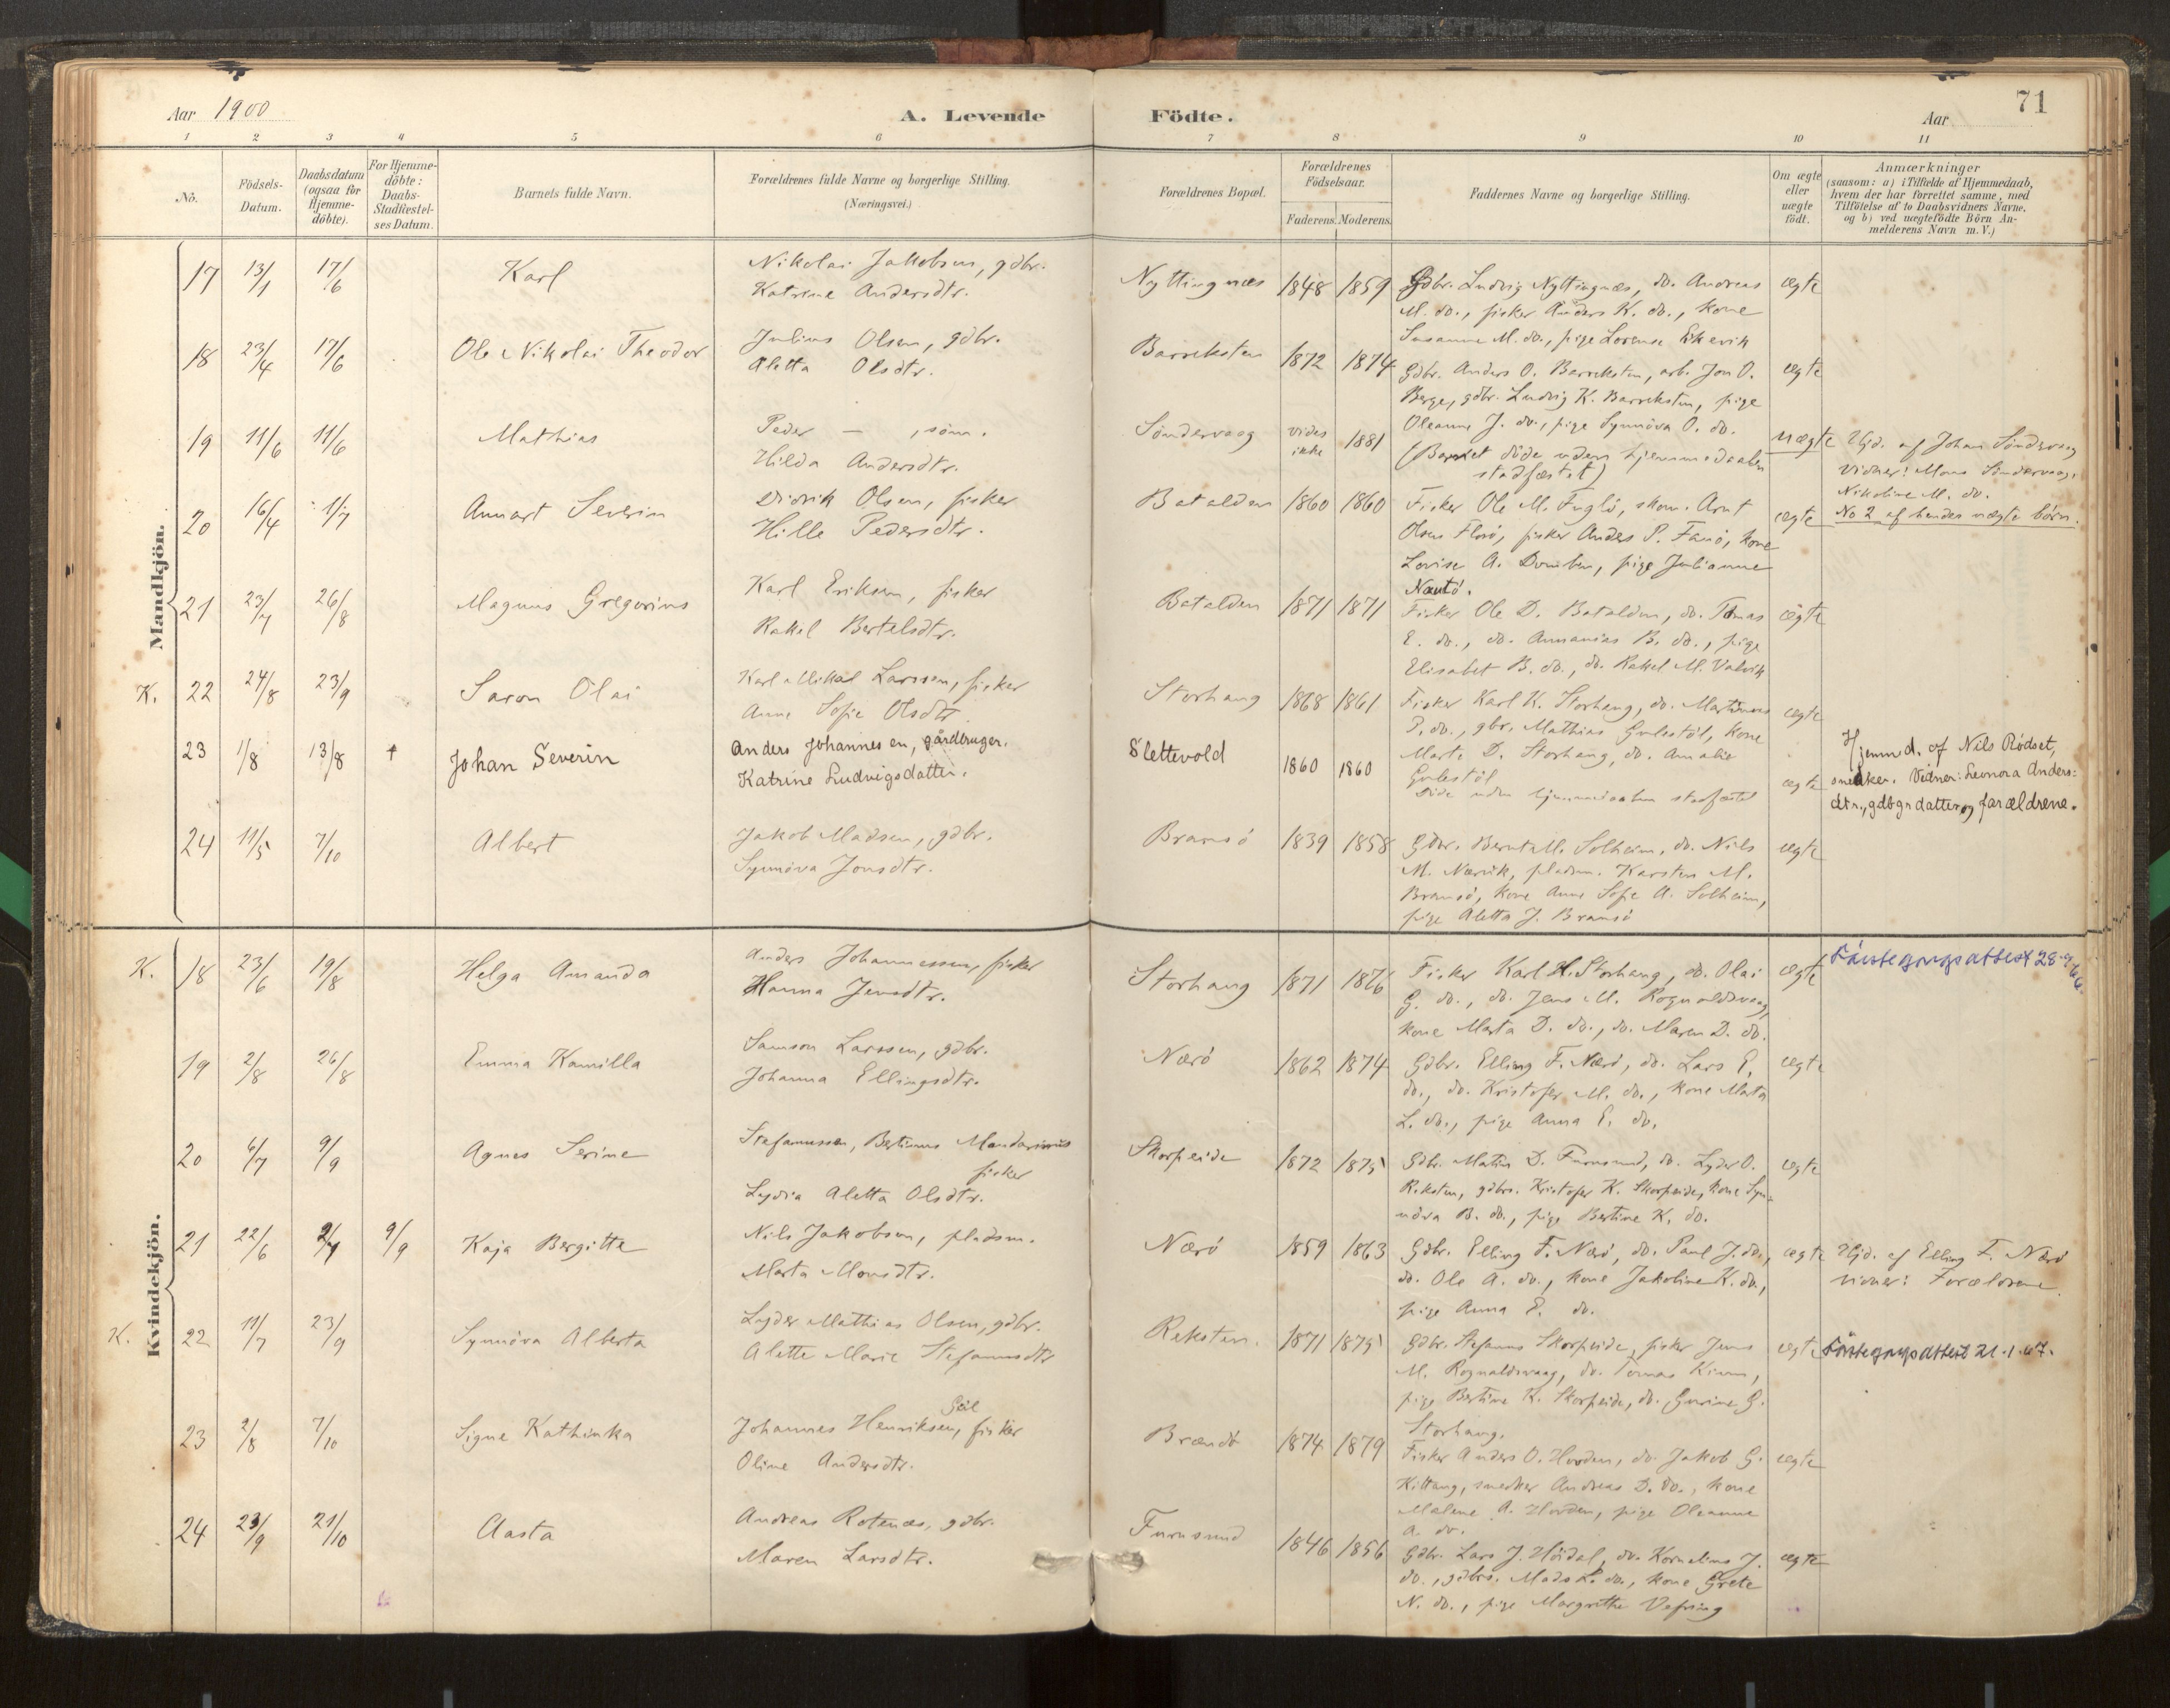 71
Aar 1900
A. Levende Födte.
Aar
1 2 3 4 5 6 7 8 9 10 11
No.
Födsels-Datum.
Daabsdatum (ogsaa for Hjemme-döbte).
For Hjemme-döbte: Daabs-Stadfæstel-ses Datum.
Barnets fulde Navn.
Forældrenes fulde Navne og borgerlige Stilling. (Næringsvei.)
Forældrenes Bopæl.
Forældrenes Födselsaar.
Faderens. Moderens.
Faddernes Navne og borgerlige Stilling.
Om ægte eller uægte födt.
Anmærkninger
(saasom: a) i Tilfælde af Hjemmedaab,
hvem der har forrettet samme, med
Tilföielse af to Daabsvidners Navne,
og b) ved uægtefödte Börn An-
melderens Navn m. V.)
Mandkjön.
17 13/1 17/6 Karl
Nikolai Jakobsen, gdbr.
Katrine Andersdtr.
Nyttingnæs 1848 1859
Gdbr. Ludvig Nyttingnæs, do. Andreas
M. do., fisker Anders K. do., kone
Susanne M. do., pige Lorense Eikevik
ægte
18 23/4 17/6 Ole Nikolai Theodor
Julius Olsen, gdbr.
Aletta Olsdtr.
Barreksten 1872 1874
Gdbr. Anders O. Barreksten, arb. Jon O.
Berge, gdbr. Ludvig K. Barreksten, pige
Oleanne J. do., pige Synnöva O. do.
ægte
19 11/6 11/6 Mathias
Peder — , söm.
Hilda Andersdtr.
Söndervaag vides ikke 1881
(Barnet döde uden hjemmedaaben
stadfæstet)
uægte
Hjd. af Johan Söndervaag
Vidner: Mons Söndervaag,
Nikoline M. do.
No 2 af hendes uægte börn.
20 16/4 1/7 Annart Severin
Didrik Olsen, fisker
Hille Pedersdtr.
Batalden 1860 1860
Fisker Ole M. Fuglö, skom. Arnt
Olsen Florö, fisker Anders P. Fanö, kone
Lovise A. Domben, pige Julianne
Nautö.
ægte
21 23/7 26/8 Magnus Gregorius
Karl Eriksen, fisker
Rakel Bertelsdtr.
Batalden 1871 1871
Fisker Ole D. Batalden, do. Tomas
E. do., do. Annanias B. do., pige
Elisabet B. do., do. Rakel M. Valvik
ægte
K. 22 24/8 23/9 Saron Olai
Karl Mikal Larssen, fisker
Anne Sofie Olsdtr.
Storhaug 1868 1861
Fisker Karl K. Storhaug, do. Martinus
P. do., gbr. Mathias Gulestöl, kone
Marte D. Storhaug, do. Amalie
Gulestöl
ægte
23 1/8 13/8 † Johan Severin
Anders Johannesen, gårdbruger.
Katrine Ludvigsdatter.
Slettevold 1860 1860
Döde uden hjemmedaaben stadfæstet
ægte
Hjemmd. af Nils Rödset,
snedker. Vidner: Leonora Anders:
dtr., gdbgr datter og forældrene.
24 11/5 7/10 Albert
Jakob Madsen, gdbr.
Synnöva Jonsdtr.
Bramsö 1839 1858
Gdbr. Bernt M. Solheim, do. Nils
M. Nærvik, pladsm. Karsten M.
Bramsö, kone Anne Sofie A. Solheim,
pige Aletta J. Bramsö
ægte
Kvindekjön.
K. 18 23/6 19/8 Helga Amanda
Anders Johannessen, fisker
Hanna Jensdtr.
Storhaug 1871 1876
Fisker Karl H. Storhaug, do. Olai
G. do., do. Jens M. Rognaldsvaag,
kone Marta D. do., do. Maren D. do.
ægte
Förstegangsattest 28-9-66.
19 2/8 26/8 Emma Kamilla
Samson Larssen, gdbr.
Johanna Ellingsdtr.
Nærö 1862 1874
Gdbr. Elling F. Nærö, do. Lars E.
do., do. Kristofer M. do., kone Marta
L. do., pige Anna E. do.
ægte
20 6/7 9/9 Agnes Serine
Stefanussen, Bertinus Mandarinus
fisker
Lydia Aletta Olsdtr.
Skorpeide 1872 1875
Gdbr. Martin D. Furusund, do. Lyder O.
Reksten, gdbrs. Kristofer K. Skorpeide, kone Syn-
növa B. do., pige Bertine K. do.
ægte
21 22/6 2/7 9/9 Kaja Bergitte
Nils Jakobsen, pladsm.
Marta Monsdtr.
Nærö 1859 1863
Gdbr. Elling F. Nærö, do. Paul J. do.,
do. Ole A. do., kone Jakoline K. do.,
pige Anna E. do.
ægte
Hjd. af Elling F. Nærö
vidner: Forældrene.
K. 22 11/7 23/9 Synnöva Alberta
Lyder Mathias Olsen, gdbr.
Alette Marie Stefanusdtr
Reksten. 1871 1875
Gdbr. Stefanus Skorpeide, fisker Jens
M. Rognaldsvaag, do. Tomas Kinn,
pige Bertine K. Skorpeide, do. Gurine G.
Storhaug.
ægte
Förstegangsattest 21.1.67.
23 2/8 7/10 Signe Kathinka
Geil
Johannes Henriksen, fisker
Oline Andersdtr.
Brandö 1874 1879
Fisker Anders O. Hovden, do. Jakob G.
Kittang, snedker Andreas D. do., kone
Malene A. Hovden, pige Oleanne
A. do.
ægte
24 23/9 21/10 Aasta
Andreas Rotenæs, gdbr.
Maren Larsdtr.
Furusund 1846 1856
Gdbr. Lars J. Höidal, do. Kornelius J.
do., gdbrs. Mads L. do., kone Grete
N. do., pige Margrethe Vefring
ægte